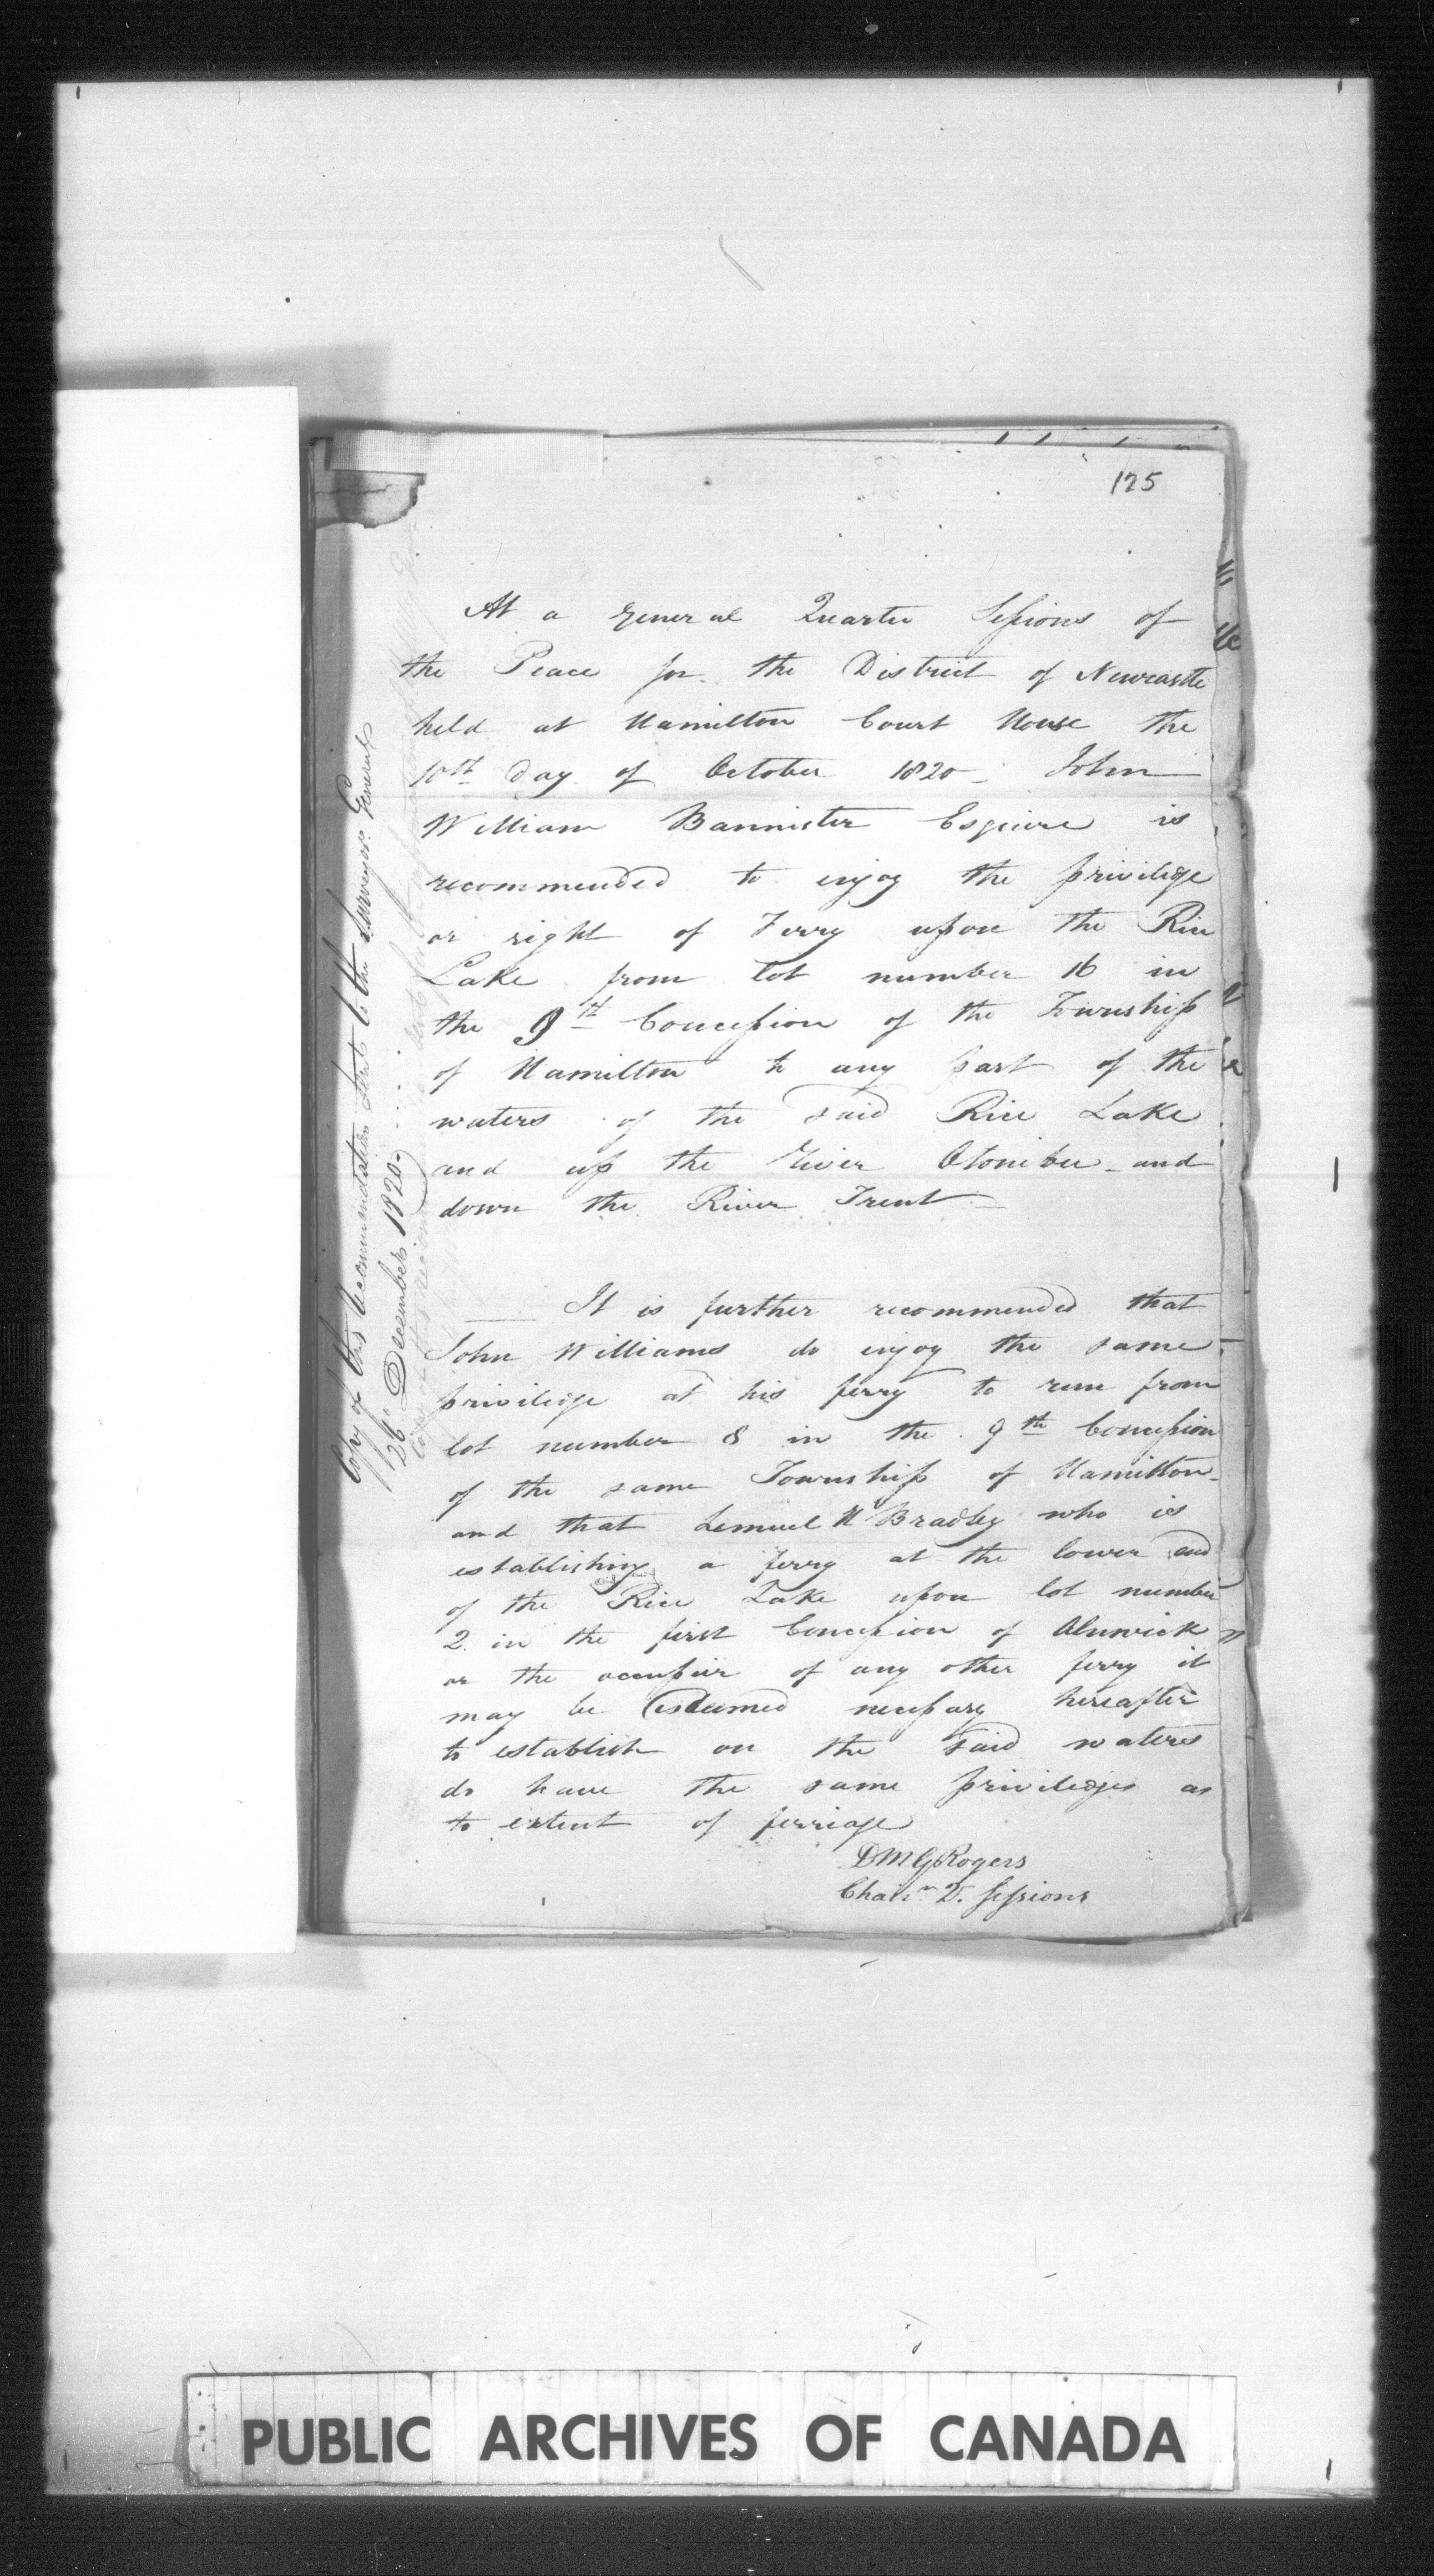 125
At a General Quarter Sessions of
the Peace for the District of Newcastle
held at Hamilton Court House the
10th day of October 1820 - John
William Bannister Esquire is
recommended to enjoy the privilege
or right of Ferry upon the Rice
Lake from lot number 16 in
the 9th Concession of the Township
of Hamilton to any part of the
waters of the said Rice Lake
and up the River Otonibee - and
down the River Trent -
It is further recommended that
John Williams do enjoy the same
privilege at his ferry to run from
lot number 8 in the 9th Concession
of the same Township of Hamilton -
and that Lemuel H Bradley who is
establishing a ferry at the lower end
of the Rice Lake upon lot number
2 in the first Concession of Alnwick
or the occupier of any other ferry it
may be esteemed necessary hereafter
to establish on the said waters
do have the same privileges as
to extent of ferriage
DMGRogers
Chairn Q. Sessions
Copy of this Recommendation sent to the Surveyor General
26" December 1820.
PUBLIC ARCHIVES OF CANADA